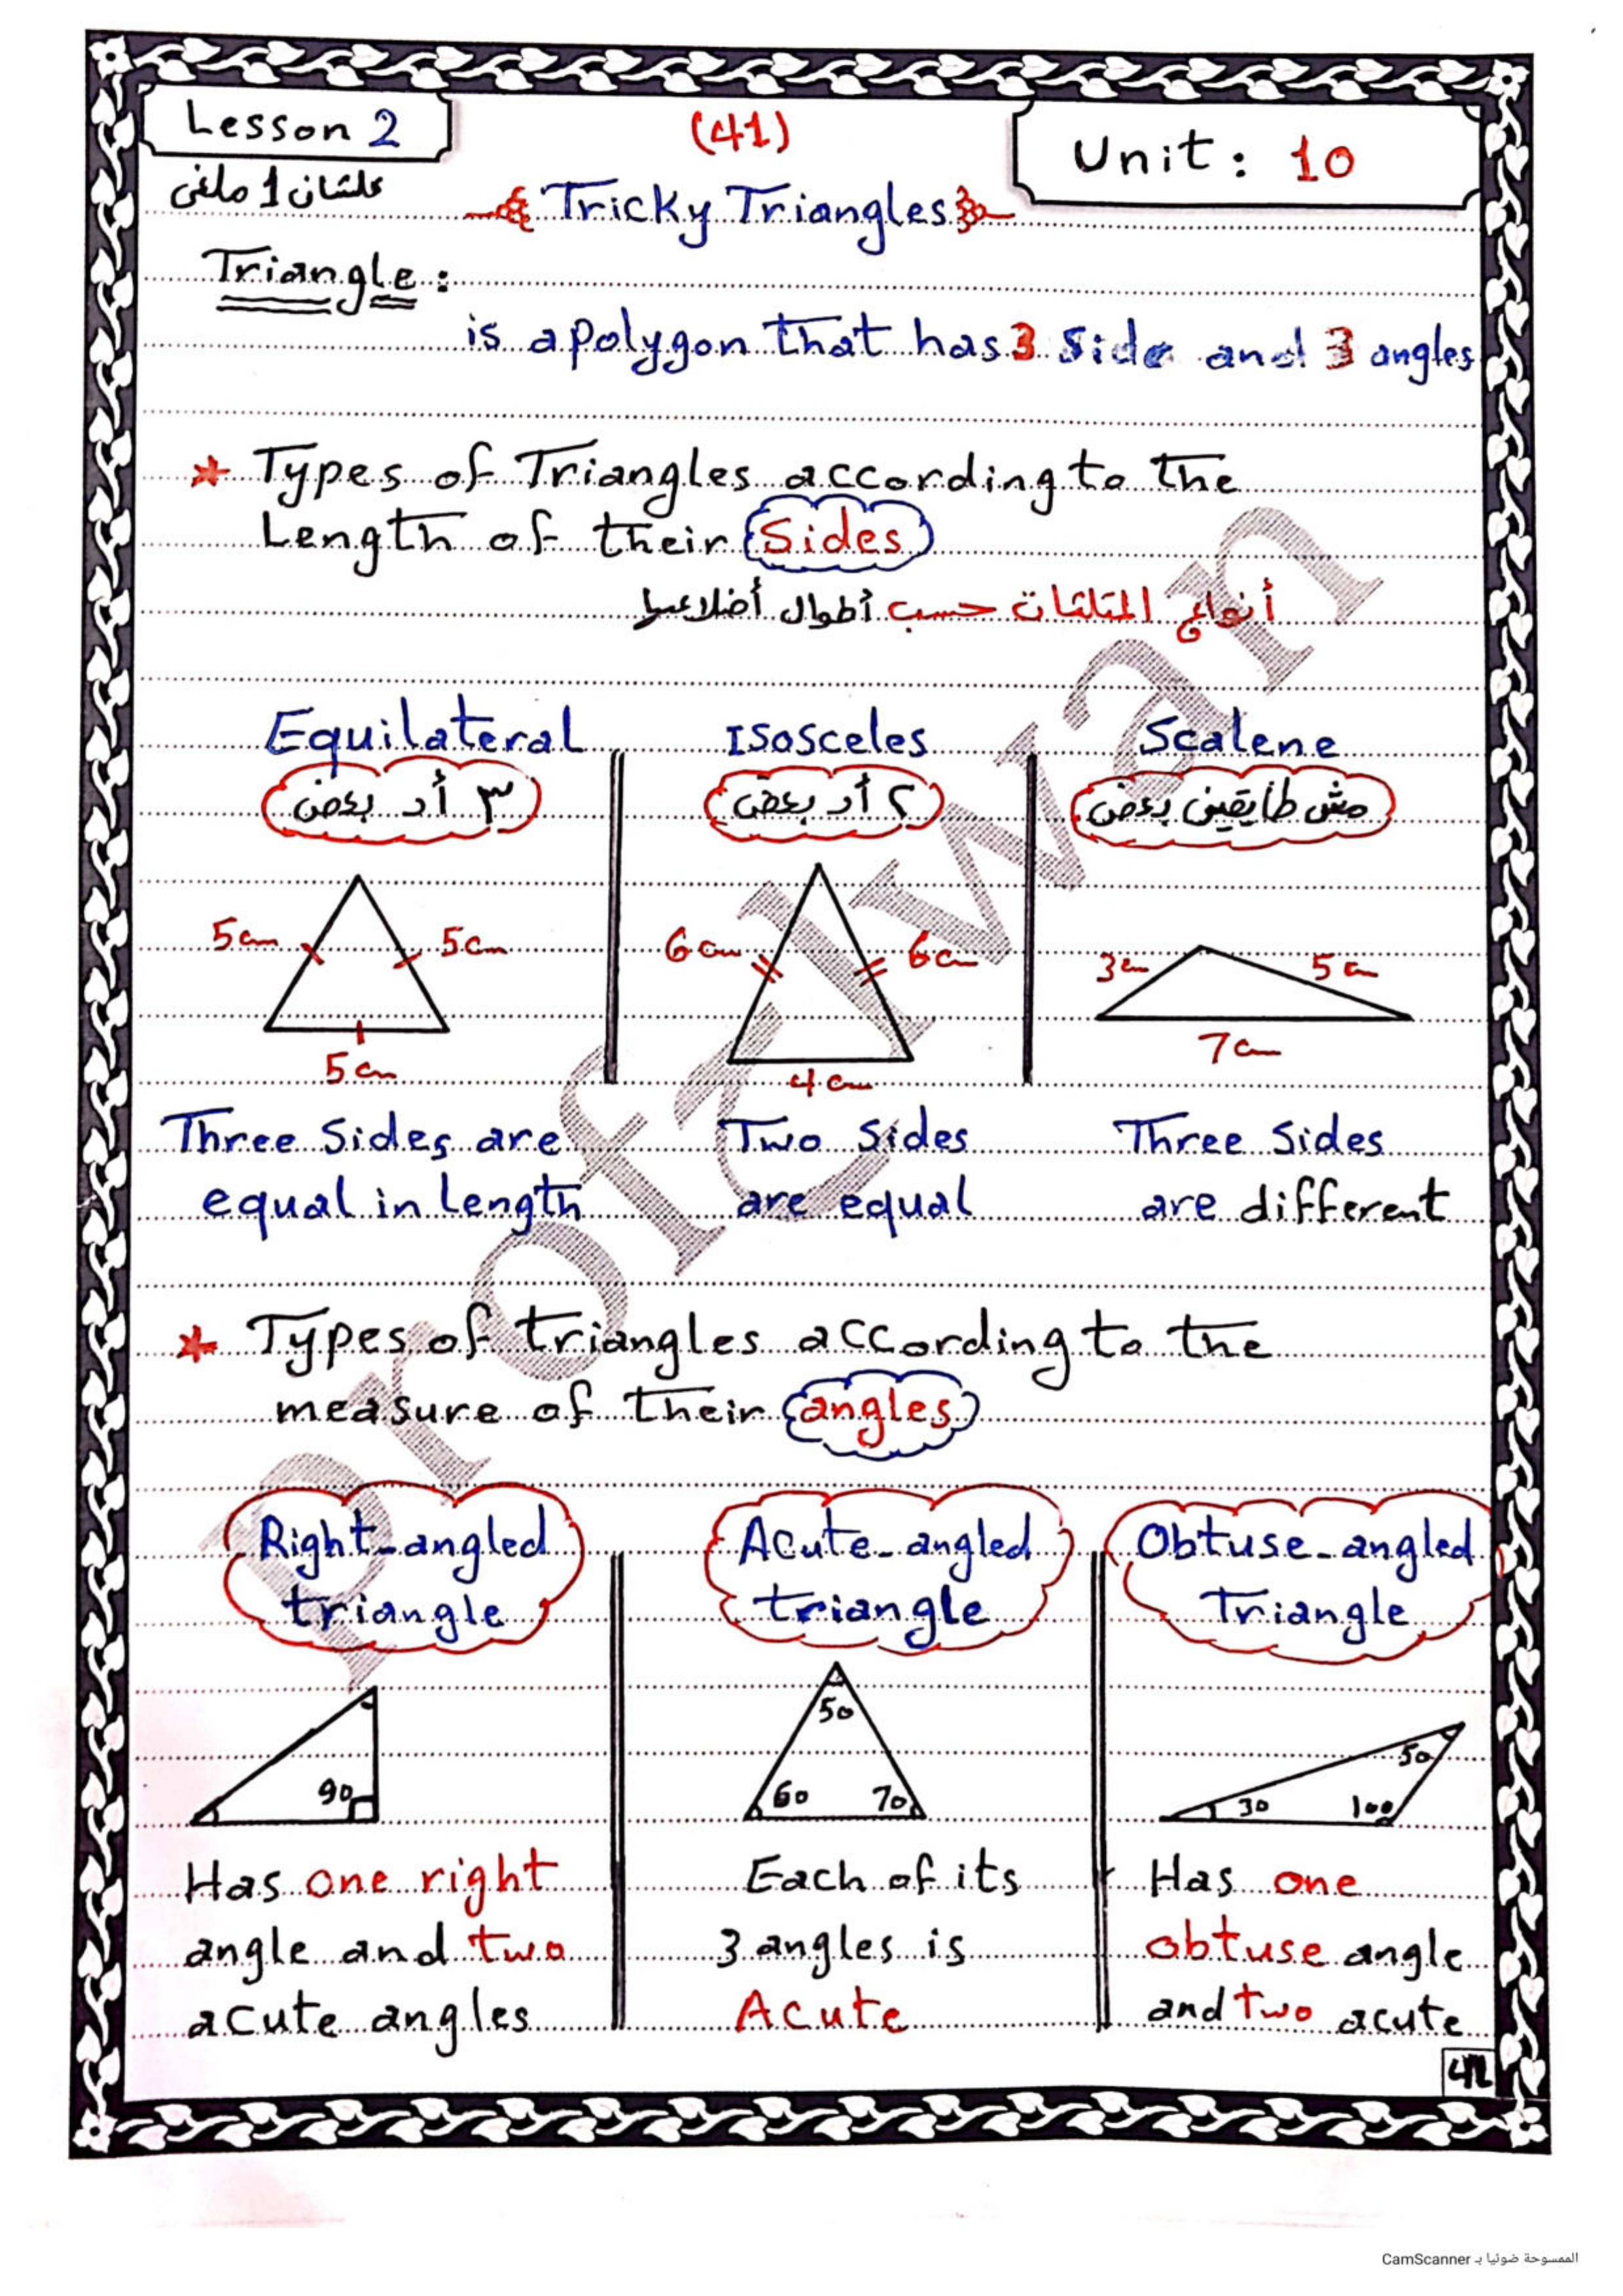 Lesson 2
(41)
Unit: 10
علشان 1 ملغى
Tricky Triangles
Triangle:
is a polygon that has 3 side and 3 angles
* Types of Triangles according to the
Length of their Sides
أنواع المثلثات حسب أطوال أضلاعها
Equilateral
Isosceles
Scalene
٣ أد بعض
٢ أد بعض
مش طايقين بعض
5cm
5cm
5cm
6cm
6cm
4cm
3cm
5cm
7cm
Three Sides are
equal in length
Two Sides
are equal
Three Sides
are different
* Types of triangles according to the
measure of their angles
Right-angled
triangle
Acute-angled
triangle
Obtuse-angled
Triangle
90
50
60
70
50
30
100
Has one right
angle and two
acute angles
Each of its
3 angles is
Acute
Has one
obtuse angle
and two acute
CamScanner الممسوحة ضوئيا بـ